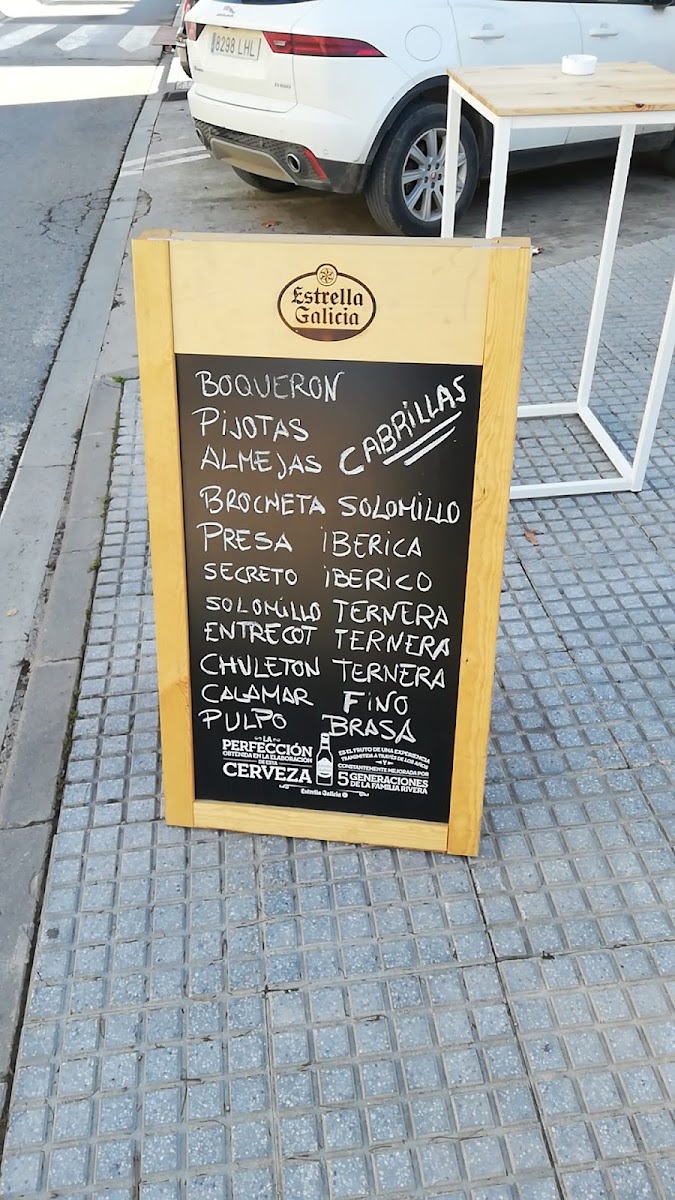 8298 LHL
Estrella
Galicia
BOQUERON
PIJOTAS
CABRILLAS
ALMEJAS
BROCHETA SOLOMILLO
PRESA IBERICA
SECRETO IBERICO
SOLOMILLO TERNERA
ENTRECOT TERNERA
CHULETON TERNERA
CALAMAR FINO
PULPO BRASA
LA
PERFECCIÓN
OBTENIDA EN LA ELABORACIÓN
DE ESTA
CERVEZA
ES EL FRUTO DE UNA EXPERIENCIA
TRANSMITIDA A TRAVÉS DE LOS AÑOS
Y
CONSTANTEMENTE MEJORADA POR
5 GENERACIONES
DE LA FAMILIA RIVERA
Estrella Galicia